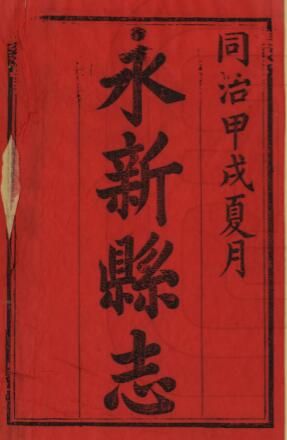 同治甲戌夏月
永新縣志